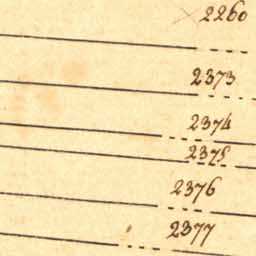 2260
2373
2374
2375
2376
2377